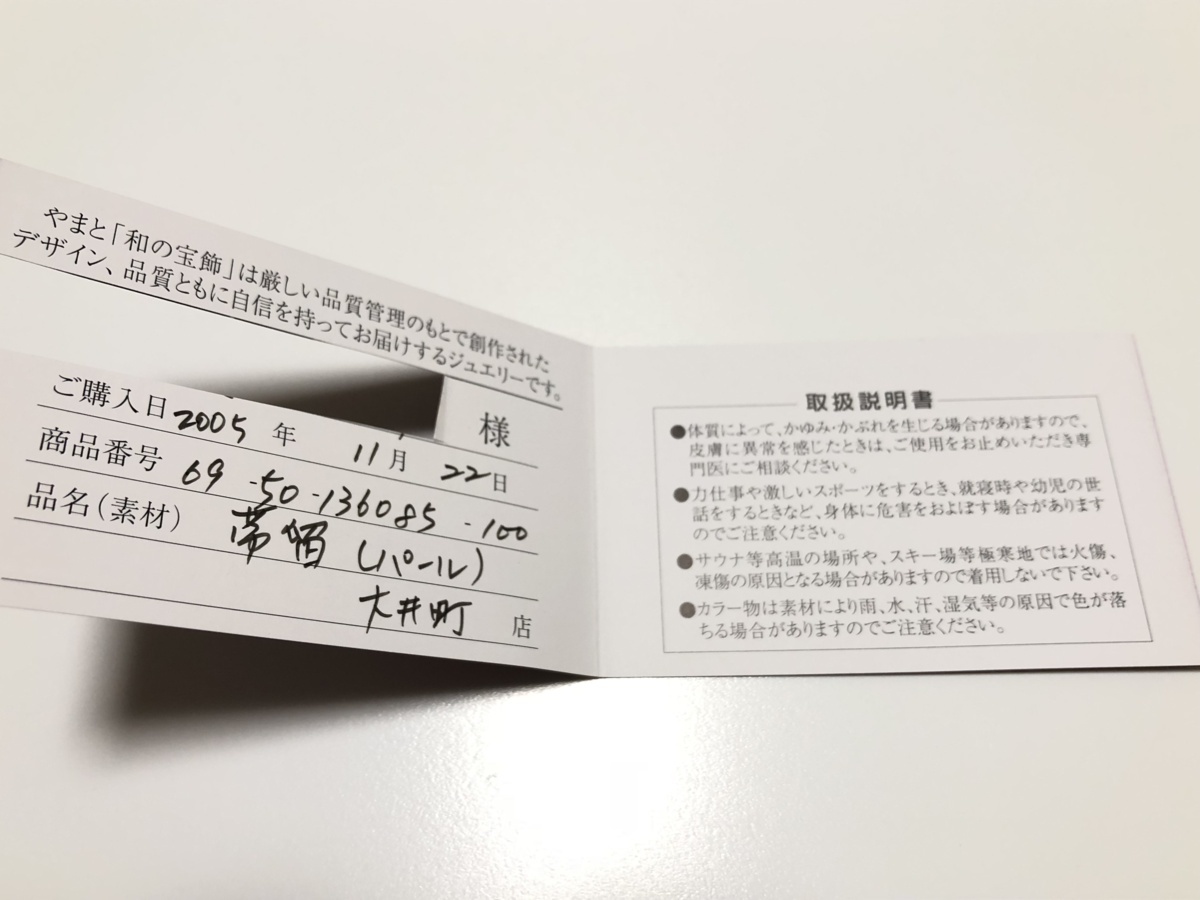 やまと「和の宝飾」は厳しい品質管理のもとで創作された
デザイン、品質ともに自信を持ってお届けするジュエリーです。
様
ご購入日 2005 年 11 月 22 日
商品番号 69-50-136085-100
品名(素材) 帯留(パール)
大井町 店
取扱説明書
●体質によって、かゆみ・かぶれを生じる場合がありますので、
皮膚に異常を感じたときは、ご使用をお止めいただき専
門医にご相談ください。
●力仕事や激しいスポーツをするとき、就寝時や幼児の世
話をするときなど、身体に危害をおよぼす場合があります
のでご注意ください。
●サウナ等高温の場所や、スキー場等極寒地では火傷、
凍傷の原因となる場合がありますので着用しないで下さい。
●カラー物は素材により雨、水、汗、湿気等の原因で色が落
ちる場合がありますのでご注意ください。